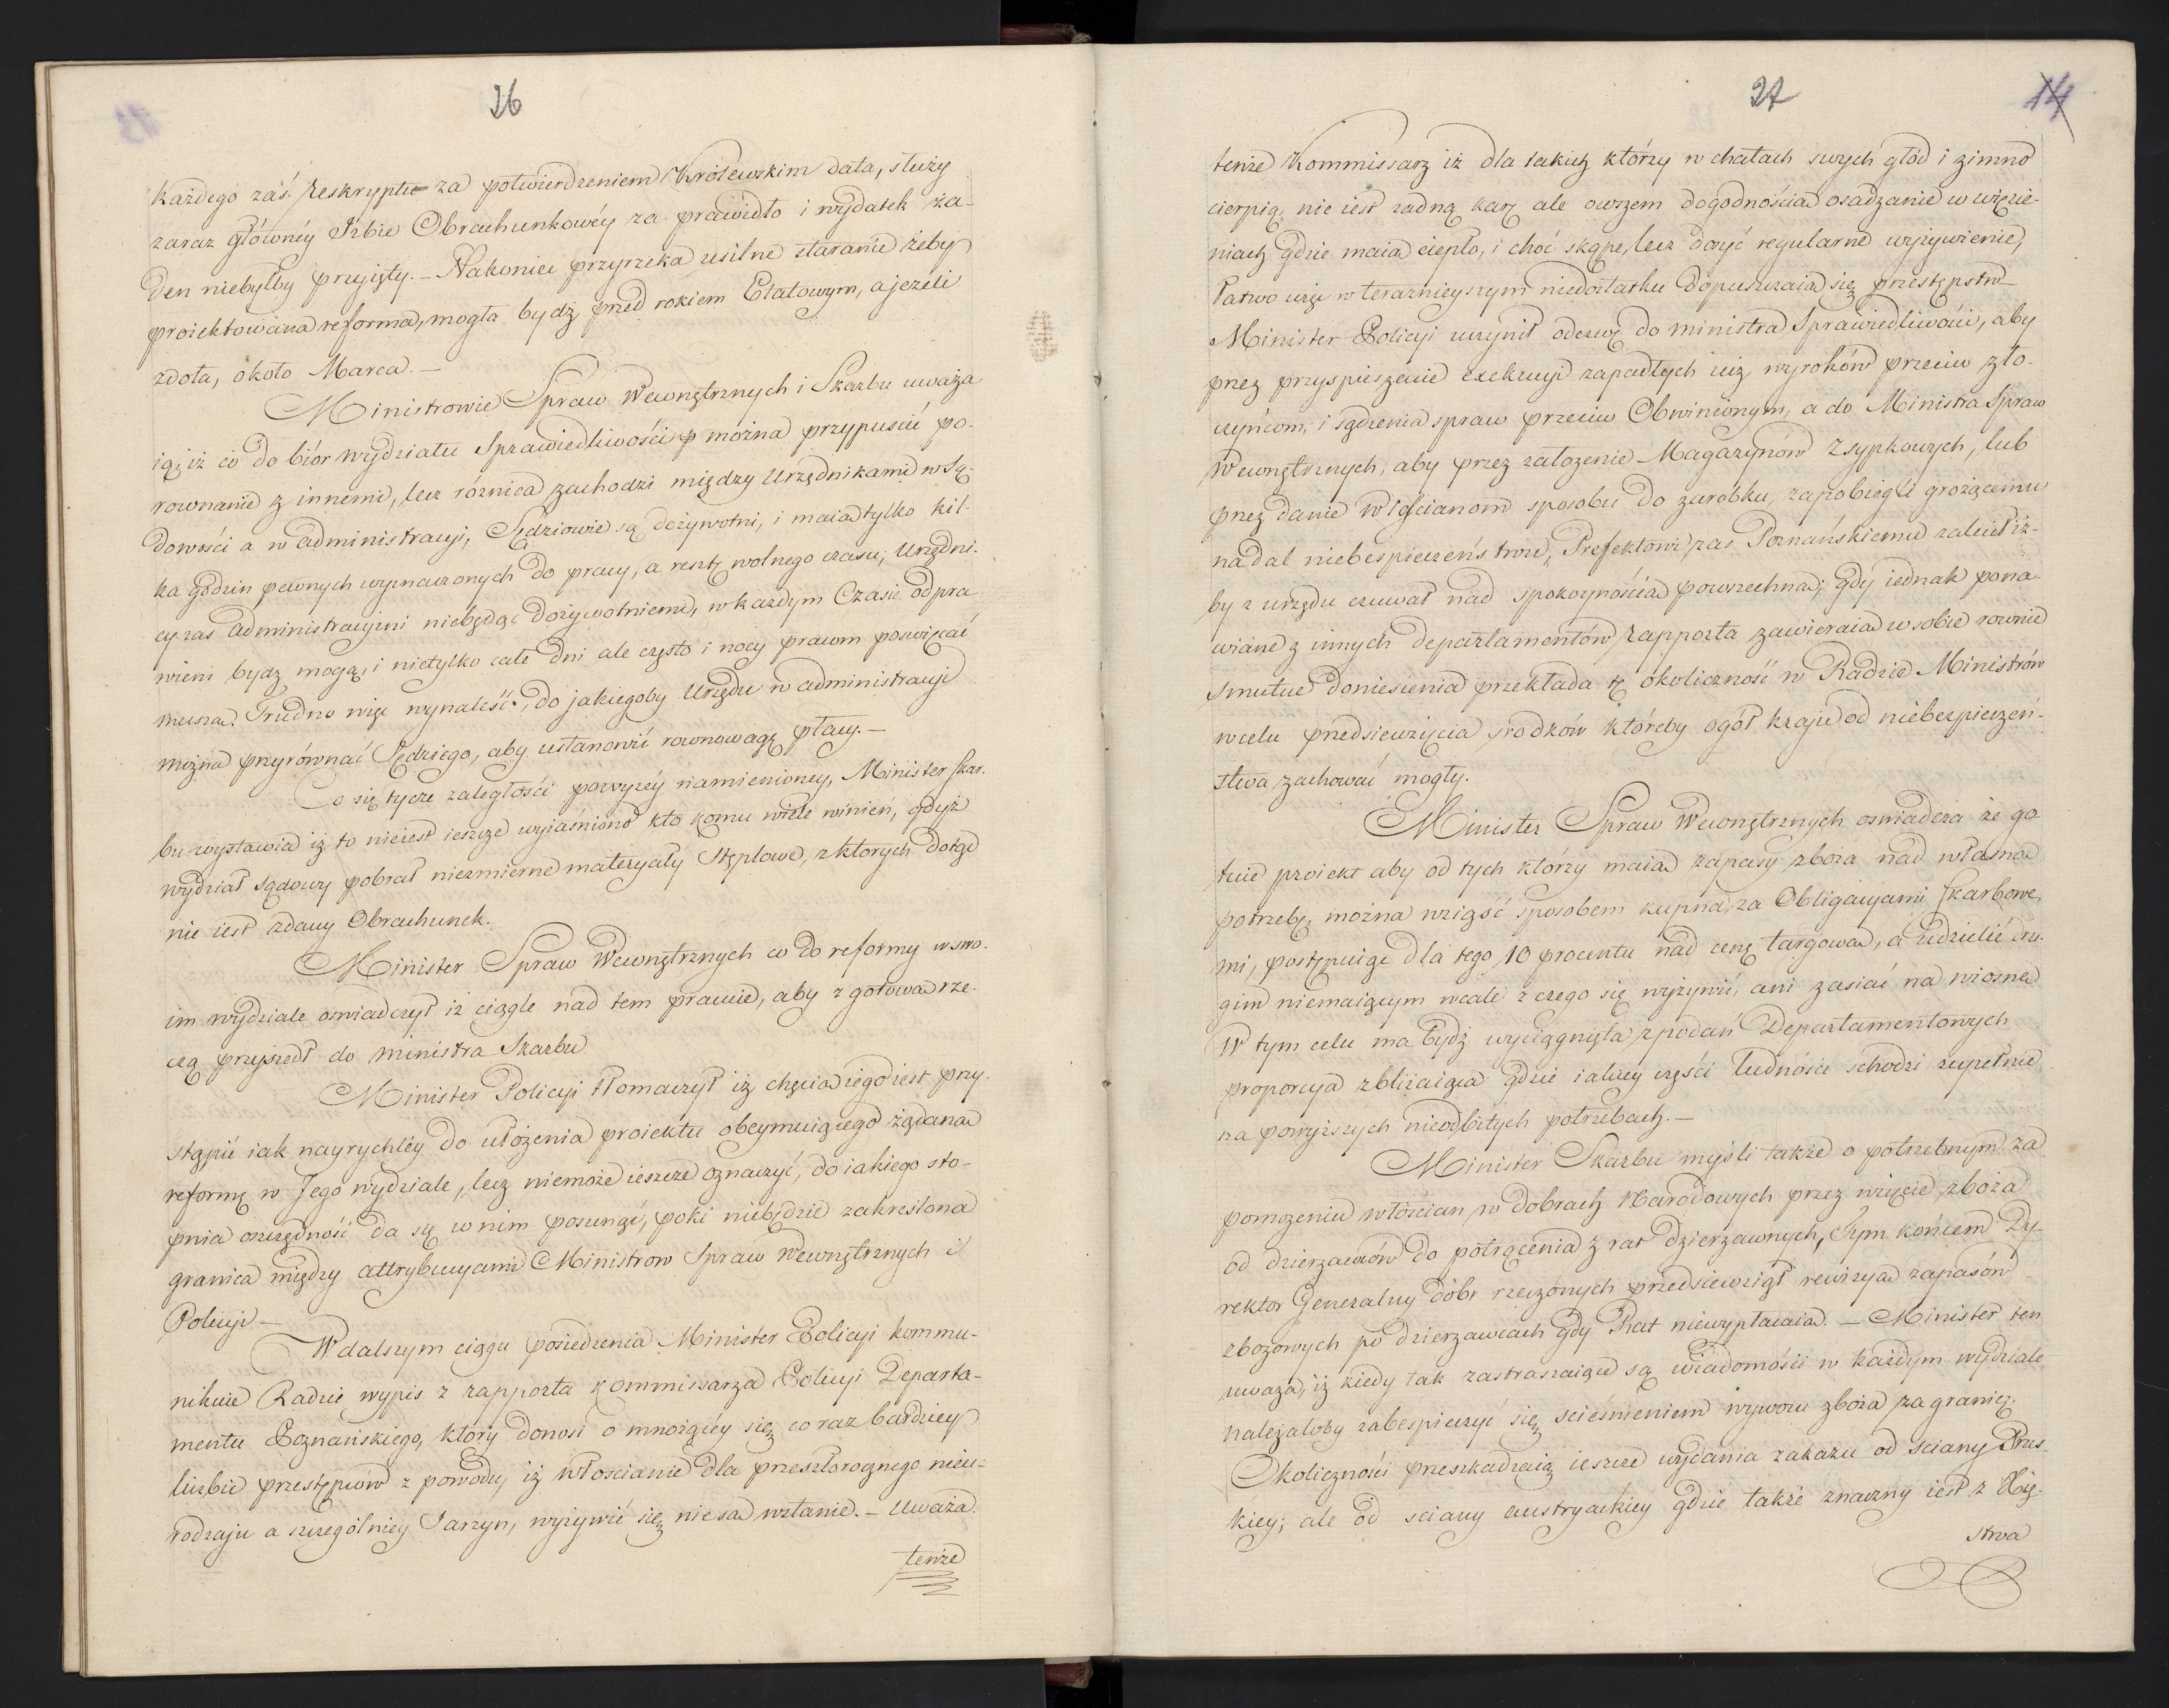 26
każdego zaś Reskryptu za potwierdzeniem Królewskim data, służy
zaraz główney Izbie Obrachunkowéy za prawidło i wydatek ża-
den niebyłby przyięty. — Nakoniec przyrzeka usilne staranie żeby
proiektowana reforma, mogła bydź przed rokiem Etatowym, a jeżeli
zdoła, około Marca. —
Ministrowie Spraw Wewnętrznych i Skarbu uważa
ią, iż co do biór wydziału Sprawiedliwości można przypuścić po-
rownanie z innemi, lecz róznica zachodzi między Urzędnikami w Są-
dowości a w administracyi, Sędziowie są dożywotni, i maia tylko kil-
ka godzin pewnych wyznaczonych do pracy, a resztę wolnego czasu; Urzędni-
cy zas administracyini niebędąc dożywotniemi, w każdym Czasie odpra
wieni bydz mogą, i nietylko całe dni ale często i nocy pracom poswięcać
musza. Trudno więc wynaleść, do jakiegoby Urzędu w administracyi
można przyrównać Sędziego, aby ustanowić rownowagę płacy. —
Co się tycze zaległości powyzéy namienioney, Minister Skar-
bu wystawia iż to nieiest ieszcze wyjaśniono kto komu wiele winien, gdyż
wydział sądowy pobrał niezmierne materyały Stęplowe, z ktorych dotąd
nie iest zdany Obrachunek.
Minister Spraw Wewnętrznych co do reformy w swo-
im wydziale oswiadczył iż ciągle nad tem pracuie, aby z gotowa rze-
czą przyszedł do ministra Skarbu
Minister Policyi tłomaczył iż chęcia iego iest przy-
stąpić iak nayrychléy do ułożenia proiektu obeymuiącego żądana
reformę w Jego wydziale, lecz niemoże ieszcze oznaczyć, do iakiego sto-
pnia oszczędność da się w nim posunąć, poki niebędzie zakreślona
granica między attrybucyami Ministrow Spraw Wewnętrznych i
Policyi —
W dalszym ciągu posiedzenia Minister Policyi kommu-
nikuie Radzie wypis z rapporta Kommissarza Policyi Departa-
mentu Poznańskiego, który donosi o mnożącéy się co raz bardziey
liczbie przestępców z powodu iż włoscianie dla przeszłorocznego nieu-
rodzaju a szczególniey Jarzyn, wyżywić się nie sa wstanie. — Uważa
tenże
27
14
tenże Kommissarz iż dla takich którzy w chatach swych głod i zimno
cierpią, nie iest żadną karą ale owszem dogodnościa osadzanie w więzie-
niach gdzie maia ciepło, i choć skąpe, lecz dosyć regularne wyżywienie,
łatwo więc w terazniejszym niedostatku dopuszczaia się przestępstw —
Minister Policyi uczynił odezwę do ministra Sprawiedliwości, aby
przez przyspieszenie exekucyi zapadłych iuż wyroków przeciw zło-
czyńcom, i sądzenia spraw przeciw Obwinionym, a do Ministra Spraw
Wewnętrznych, aby przez założenie Magazynów Zsypkowych, lub
przez danie Włościanom sposobu do zarobku, zapobiegli grożącemu
nadal niebespieczeństwu, Prefektowi zas Poznańskiemu zalecił iż-
by z urzędu czuwał nad spokoynościa powszechna; gdy iednak pona-
wiane z innych departamentów rapporta zawieraia w sobie rownie
smutne doniesienia przekłada tę okoliczność w Radzie Ministrów
w celu przedsiewzięcia srodków któreby ogół kraju od niebezpieczeń-
stwa zachować mogły.
Minister Spraw Wewnętrznych oswiadcza że go
tuie proiekt aby od tych którzy maia zapasy zboża nad własna
potrzebę, można wziąść sposobem kupna za Obligacyami Skarbowe-
mi, postępuiąc dla tego 10 procentu nad cenę targowa, a udzielić dru-
gim niemaiącym wcale z czego się wyżywić, ani zasiać na wiosna
W tym celu ma bydź wyciągnięta z podań Departamentowych
proporcya zbliżaiąca gdzie iakiey części ludności schodzi zupełnie
na powyższych nieodbitych potrzebach. —
Minister Skarbu myśli także o potrzebnym za
pomożeniu włościan w dobrach Narodowych przez wzięcie zboża
od dzierżawców do potrącenia z rat dzierzawnych, Tym końcem Dy-
rektor Generalny dóbr rzeczonych przedsiewziął rewizya zapasów
zbożowych po dzierzawcach gdy Rat niewypłacaia. — Minister ten
uważa, iż kiedy tak zastraszaiące są wiadomości w każdym wydziale
należałoby zabespieczyć się scieśnieniem wywozu zboża za granicę.
Okoliczności przeszkadzaią ieszcze wydania zakazu od sciany Prus-
kiey; ale od sciany austryackiey gdzie także znaczny iest z Xię-
stwa